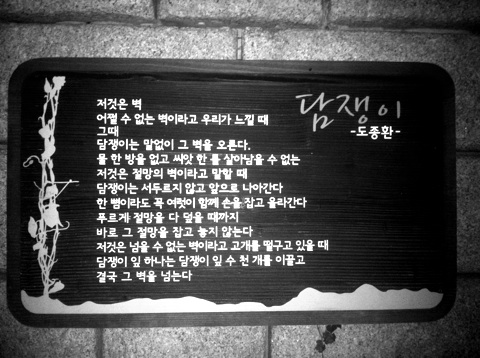 담쟁이
-도종환-
저것은 벽
어쩔 수 없는 벽이라고 우리가 느낄 때
그때
담쟁이는 말없이 그 벽을 오른다.
물 한 방울 없고 씨앗 한 톨 살아남을 수 없는
저것은 절망의 벽이라고 말할 때
담쟁이는 서두르지 않고 앞으로 나아간다
한 뼘이라도 꼭 여럿이 함께 손을 잡고 올라간다
푸르게 절망을 다 덮을 때까지
바로 그 절망을 잡고 놓지 않는다
저것은 넘을 수 없는 벽이라고 고개를 떨구고 있을 때
담쟁이 잎 하나는 담쟁이 잎 수 천 개를 이끌고
결국 그 벽을 넘는다